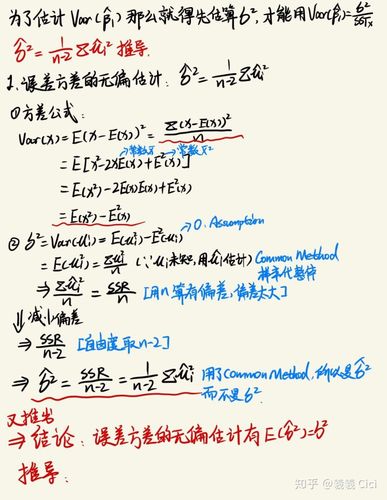 为了估计 Var(β̂₁) 那么就得先估算σ², 才能用Var(β̂₁)=σ²/SSTx
σ̂² = 1/(n-2) Σûi² 推导.
1. 误差方差的无偏估计: σ̂² = 1/(n-2) Σûi²
① 方差公式:
Var(x) = E(x-E(x))² = Σ(x-E(x))²/n
→常数x̄ →常数x̄²
= E[x²-2xE(x)+E²(x)]
= E(x²)-2E(x)E(x)+E²(x)
= E(x²)-E²(x)
→0. Assumption
② σ² = Var(ui) = E(ui²)-E²(ui)
= E(ui²) = Σui²/n (∵ui未知, 用ûi估计) Common Method
样本代替体
⇒ Σûi²/n = SSR/n [用n算有偏差, 偏差太大]
⇓ 减小偏差
⇒ SSR/(n-2) [自由度取n-2]
⇒ σ̂² = SSR/(n-2) = 1/(n-2) Σûi² 用了Common Method, 所以是σ̂²
而不是σ².
又推出
⇒ 结论: 误差方差的无偏估计有E(σ̂²)=σ²
推导:
知乎 @羲羲 Cici